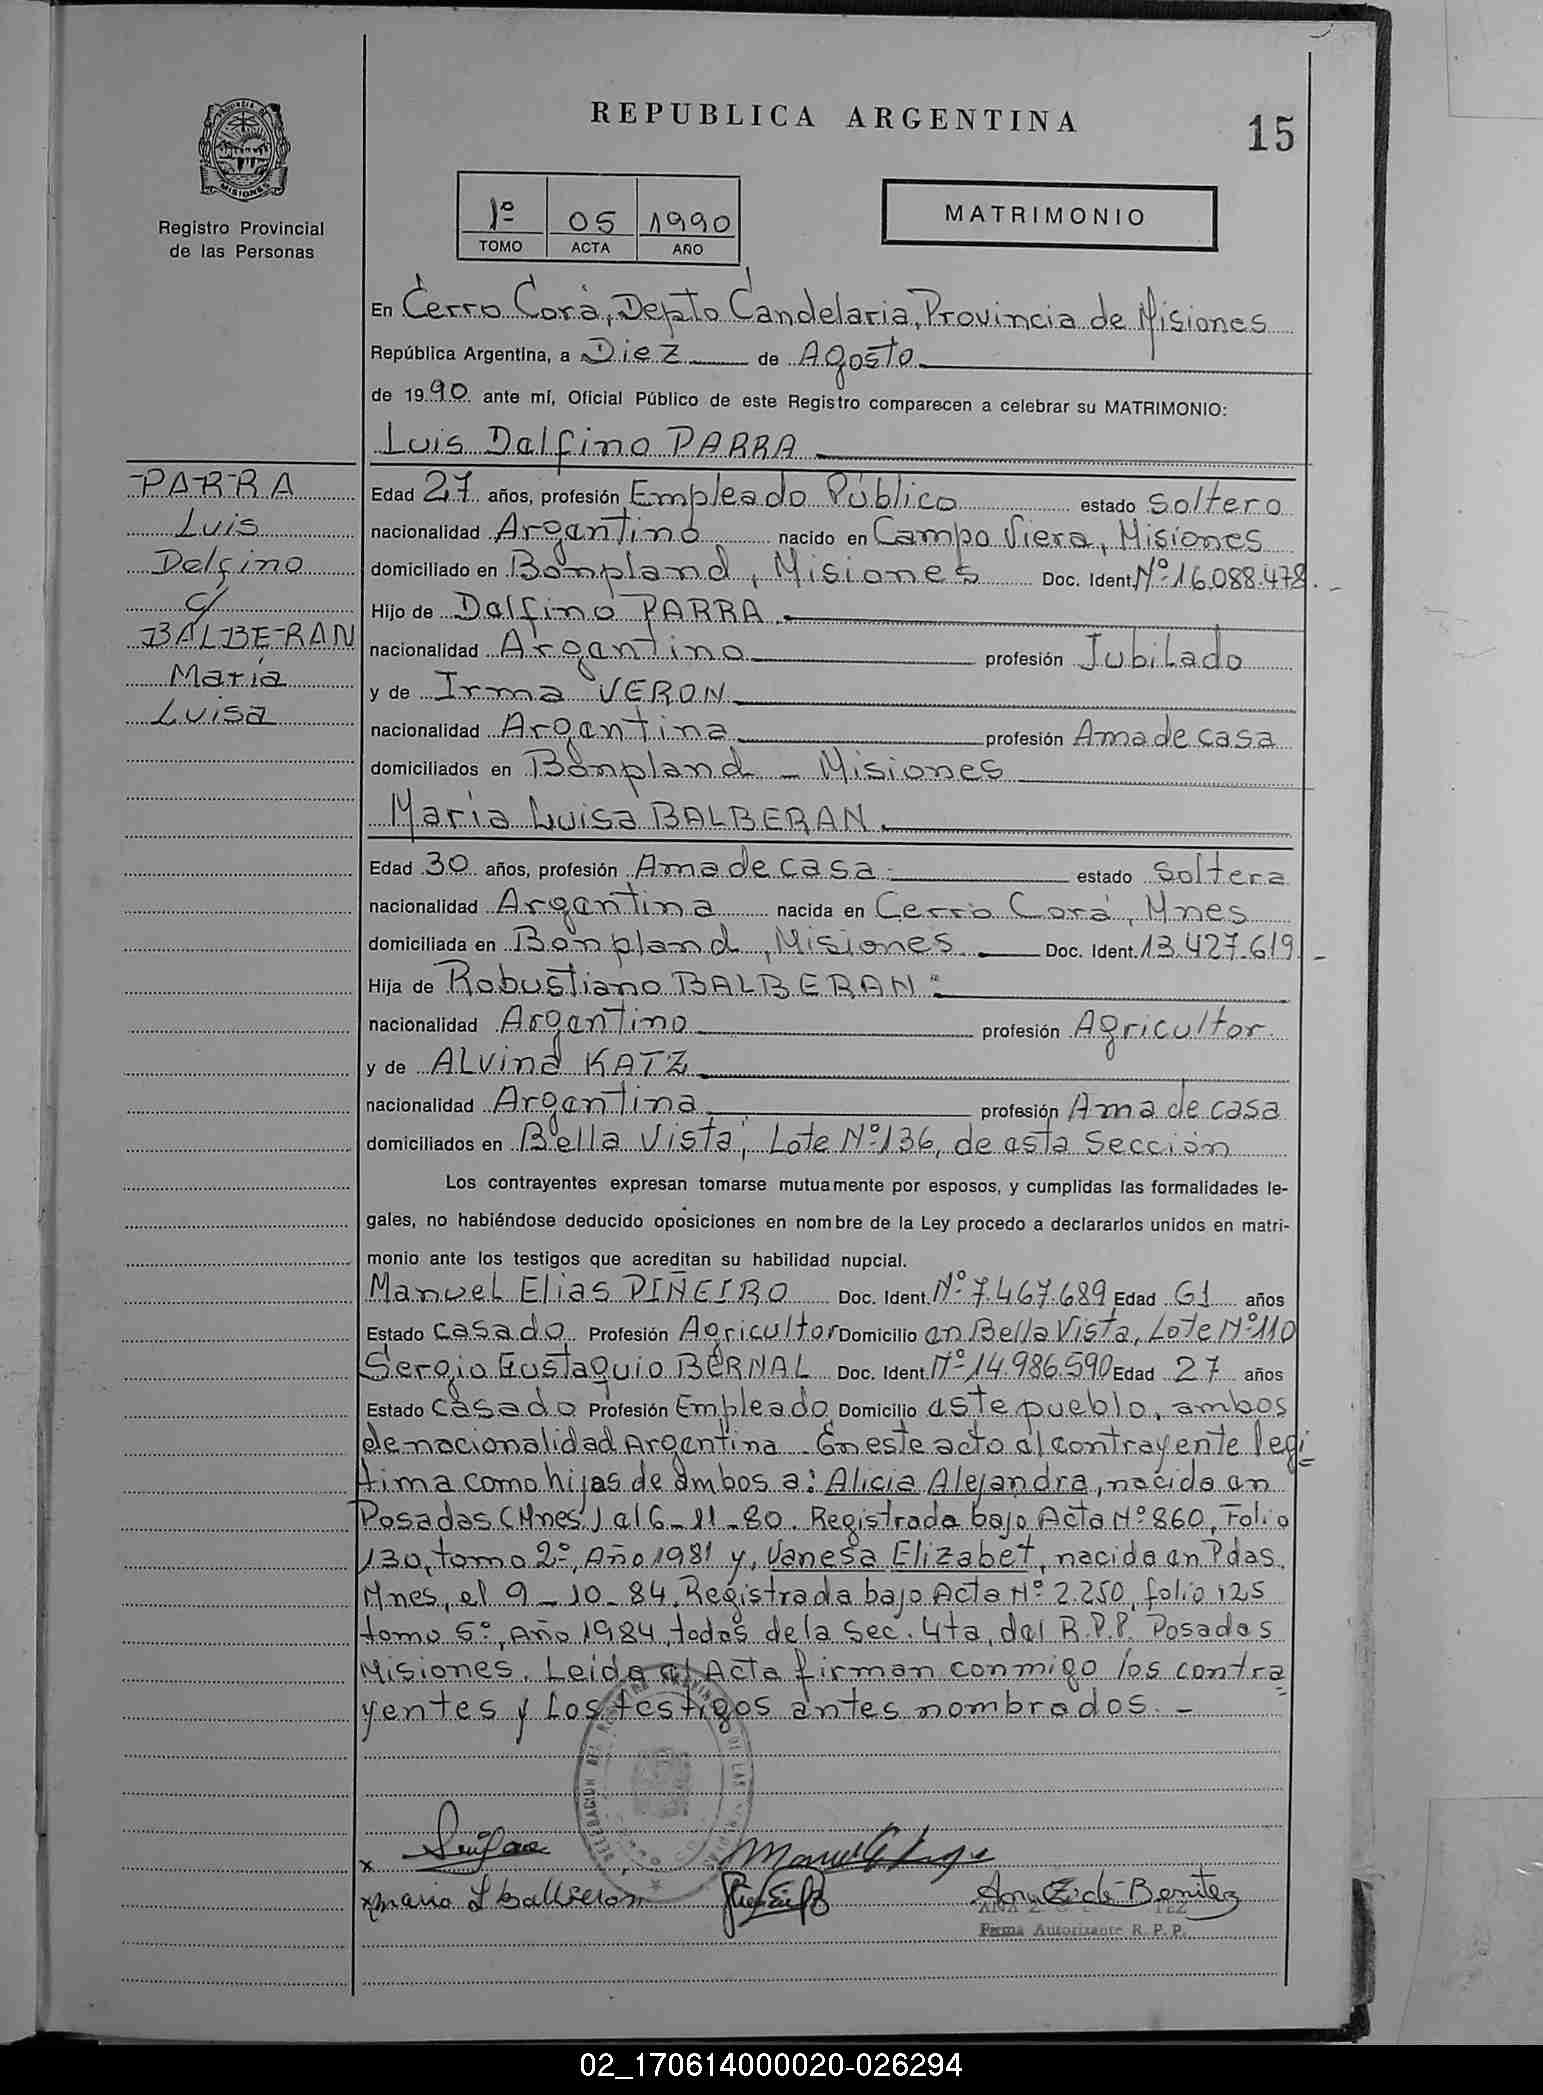 REPUBLICA ARGENTINA
15
PROVINCIA DE
MISIONES
Registro Provincial
de las Personas
1º 05 1990
TOMO ACTA AÑO
MATRIMONIO
En Cerro Corá, Depto Candelaria, Provincia de Misiones
República Argentina, a Diez de Agosto
de 1990 ante mí, Oficial Público de este Registro comparecen a celebrar su MATRIMONIO:
Luis Delfino PARRA
PARRA
Luis
Delfino
c/
BALBERAN
María
Luisa
Edad 27 años, profesión Empleado Público estado Soltero
nacionalidad Argentino nacido en Campo Viera, Misiones
domiciliado en Bonpland, Misiones Doc. Ident. Nº 16.088.478.-
Hijo de Delfino PARRA
nacionalidad Argentino profesión Jubilado
y de Irma VERON
nacionalidad Argentina profesión Ama de casa
domiciliados en Bonpland - Misiones
María Luisa BALBERAN.
Edad 30 años, profesión Ama de casa estado Soltera
nacionalidad Argentina nacida en Cerro Corá, Mnes
domiciliada en Bonpland, Misiones. Doc. Ident. 13.427.619.-
Hija de Robustiano BALBERAN
nacionalidad Argentino profesión Agricultor.
y de ALvina KATZ
nacionalidad Argentina profesión Ama de casa
domiciliados en Bella Vista, Lote Nº 136, de esta Sección
Los contrayentes expresan tomarse mutuamente por esposos, y cumplidas las formalidades le-
gales, no habiéndose deducido oposiciones en nombre de la Ley procedo a declararlos unidos en matri-
monio ante los testigos que acreditan su habilidad nupcial.
Manuel Elias PIÑEIRO Doc. Ident. Nº 7.467.689 Edad 61 años
Estado casado Profesión Agricultor Domicilio en Bella Vista, Lote Nº 110
Sergio Eustaquio BERNAL Doc. Ident. Nº 14.986.590 Edad 27 años
Estado casado Profesión Empleado Domicilio este pueblo, ambos
de nacionalidad Argentina. En este acto el contrayente legi
tima como hijas de ambos a: Alicia Alejandra, nacida en
Posadas (Mnes.) el 6-11-80. Registrada bajo Acta Nº 860, Folio
130, tomo 2º, Año 1981 y, Vanesa Elizabet, nacida en Pdas.
Mnes, el 9-10-84. Registrada bajo Acta Nº 2.250, folio 125
tomo 5º, Año 1984, todas de la Sec. 4ta, del R.P.P. Posadas
Misiones. Leída el Acta firman conmigo los contra
yentes y Los testigos antes nombrados.-
DELEGACION DEL
x
x maria L balberan
Ana Z. de Benitez
Firma Autorizante R. P. P.
02_170614000020-026294